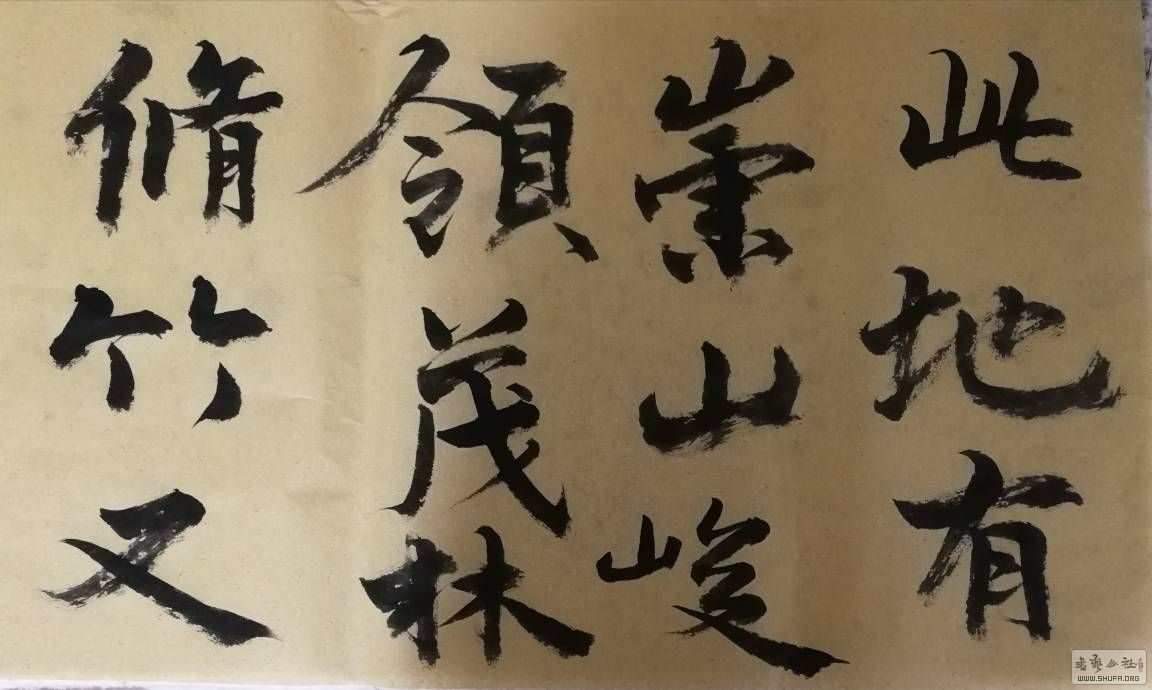 此地有
崇山峻
領茂林
脩竹又
WWW.SHUFA.ORG